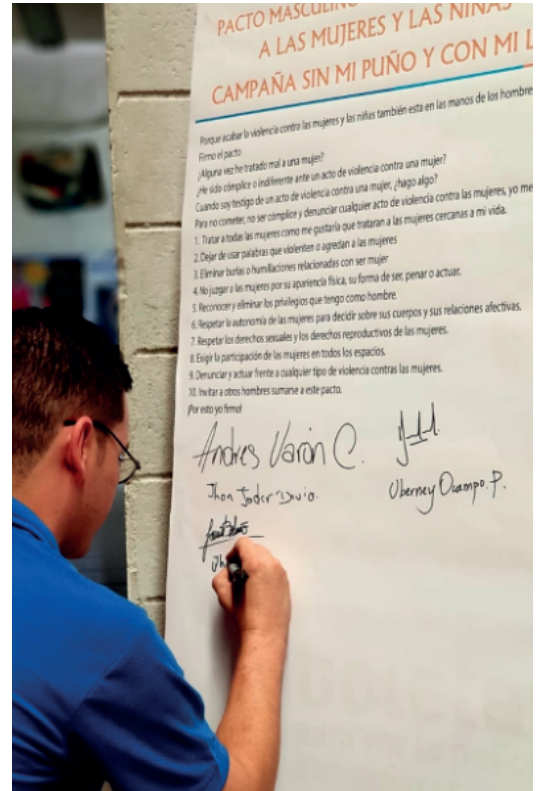 PACTO MASCULINO
A LAS MUJERES Y LAS NIÑAS
CAMPAÑA SIN MI PUÑO Y CON MI
Porque acabar la violencia contra las mujeres y las niñas también esta en las manos de los hombre
Firmo el pacto
¿Alguna vez he tratado mal a una mujer?
¿He sido cómplice o indiferente ante un acto de violencia contra una mujer?
Cuando soy testigo de un acto de violencia contra una mujer, ¿hago algo?
Para no cometer, no ser cómplice y denunciar cualquier acto de violencia contra las mujeres, yo me
1. Tratar a todas las mujeres como me gustaría que trataran a las mujeres cercanas a mi vida.
2. Dejar de usar palabras que violenten o agredan a las mujeres
3. Eliminar burlas o humillaciones relacionadas con ser mujer
4. No juzgar a las mujeres por su apariencia física, su forma de ser, penar o actuar.
5. Reconocer y eliminar los privilegios que tengo como hombre.
6. Respetar la autonomía de las mujeres para decidir sobre sus cuerpos y sus relaciones afectivas.
7. Respetar los derechos sexuales y los derechos reproductivos de las mujeres.
8. Exigir la participación de las mujeres en todos los espacios.
9. Denunciar y actuar frente a cualquier tipo de violencia contras las mujeres.
10. Invitar a otros hombres sumarse a este pacto.
¡Por esto yo firmo!
Andres Varón C.
Jhon Jader
Uberney Ocampo. P.